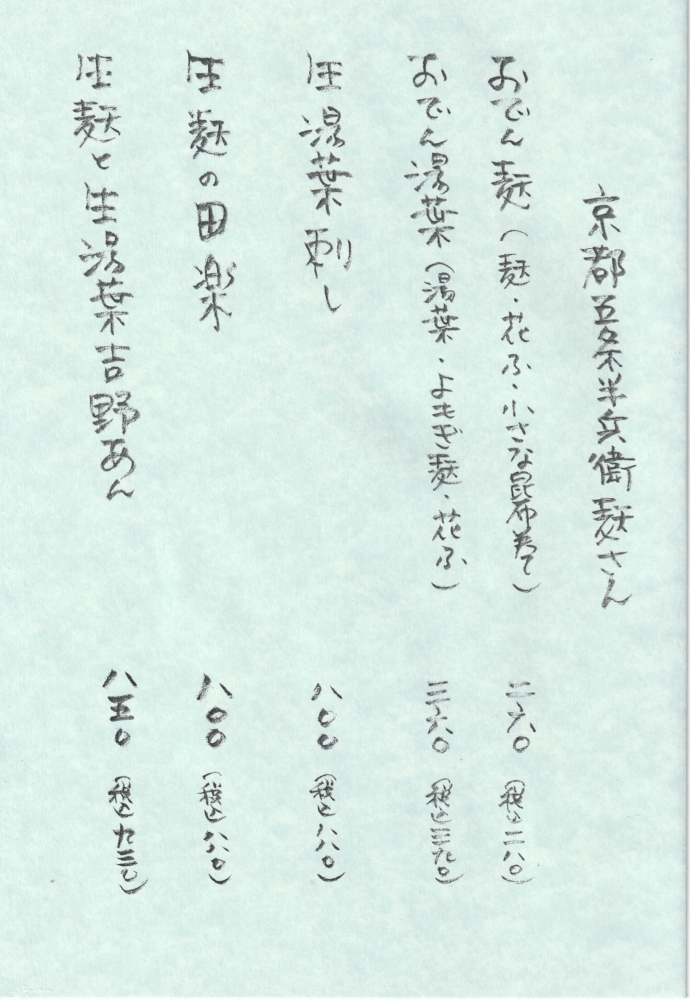 京都五条半兵衛麸さん
おでん麸(麸・花ふ・小さな昆布巻て) 二六〇 (税込二八〇)
おでん湯葉(湯葉・よもぎ麸・花ふ) 三六〇 (税込三九〇)
生湯葉刺し 八〇〇 (税込八八〇)
生麸の田楽 八〇〇 (税込八八〇)
生麸と生湯葉吉野あん 八五〇 (税込九三〇)